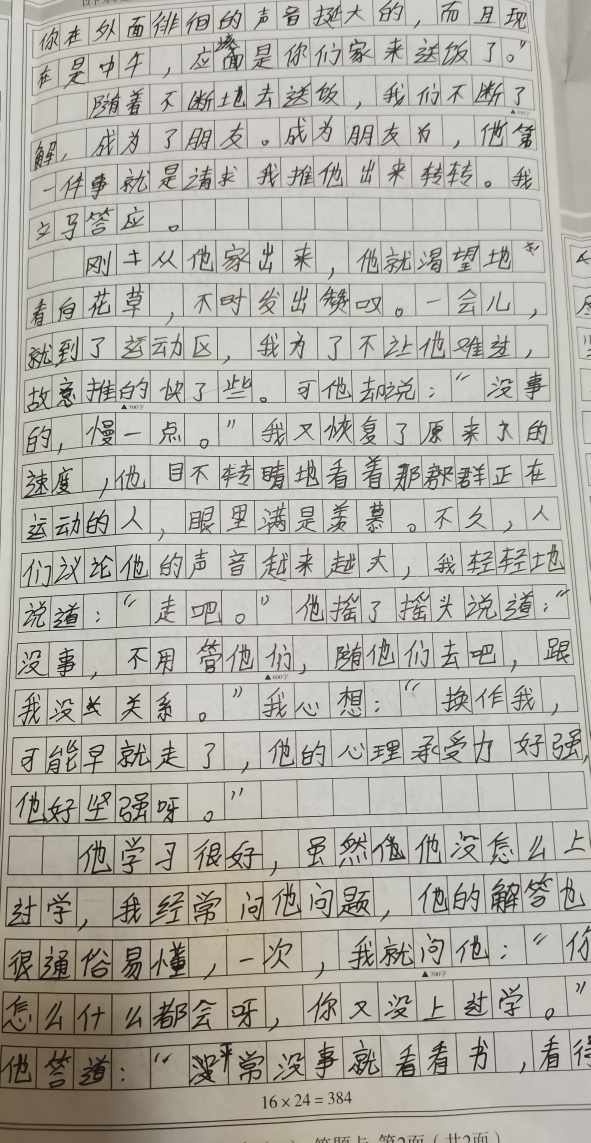 你在外面徘徊的声音挺大的，而且现
在是中午，应该是你们家来送饭了。”
随着不断地去送饭，我们不断了
解，成为了朋友。成为朋友后，他第
一件事就是请求我推他出来转转。我
立马答应。
刚从他家出来，他就渴望地
看向花草，不时发出赞叹。一会儿，
就到了运动区，我为了不让他难过，
故意推的快了些。可他却说：“没事
▲500字
的，慢一点。”我又恢复了原来的
速度，他目不转睛地看着那群正在
运动的人，眼里满是羡慕。不久，人
们议论他的声音越来越大，我轻轻地
说道：“走吧。”他摇了摇头说道：“
没事，不用管他们，随他们去吧，跟
▲600字
我没关系。”我心想：“换作我，
可能早就走了，他的心理承受力好强，
他好坚强呀。”
他学习很好，虽然他没怎么上
过学，我经常问他问题，他的解答也
很通俗易懂，一次，我就问他：“你
▲700字
怎么什么都会呀，你又没上过学。”
他答道：“平常没事就看看书，看得
16×24=384
答题卡 第2面（共2面）